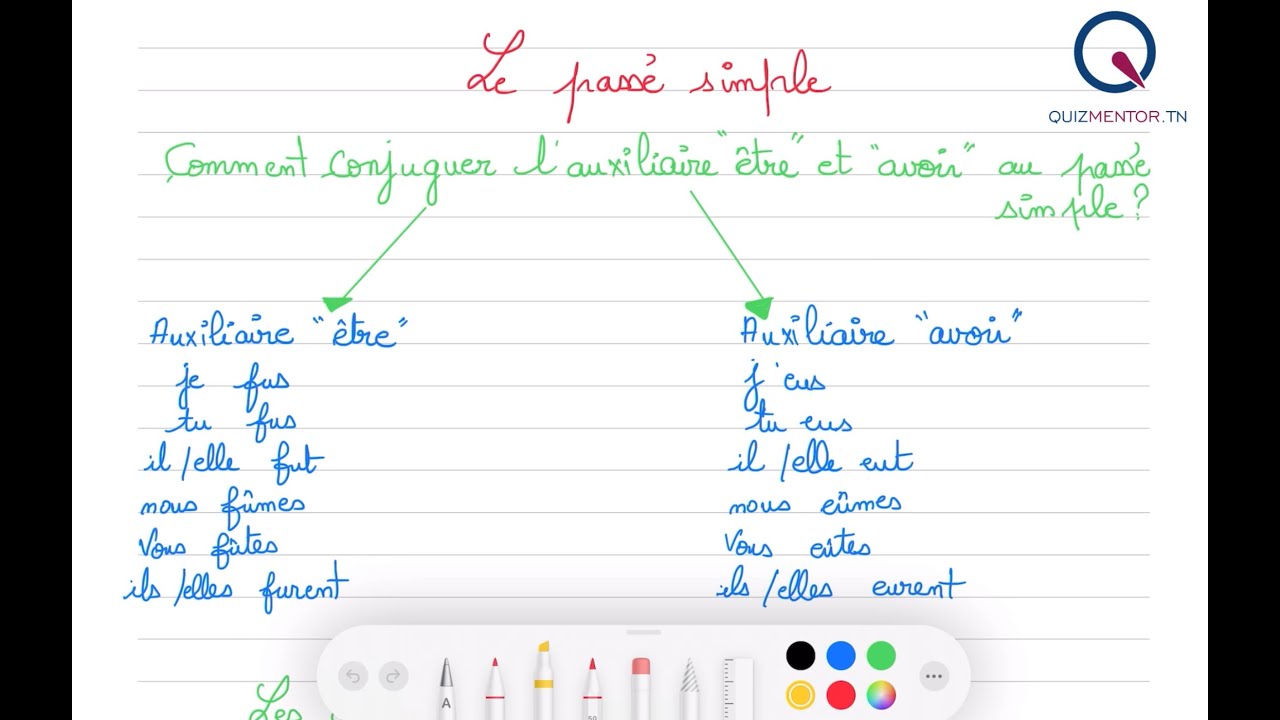 Le passé simple
QUIZMENTOR.TN
Comment conjuguer l'auxiliaire "être" et "avoir" au passé
simple?
Auxiliaire "être"
je fus
tu fus
il/elle fut
nous fûmes
Vous fûtes
ils/elles furent
Auxiliaire "avoir"
j'eus
tu eus
il/elle eut
nous eûmes
Vous eûtes
ils/elles eurent
Les
A
50